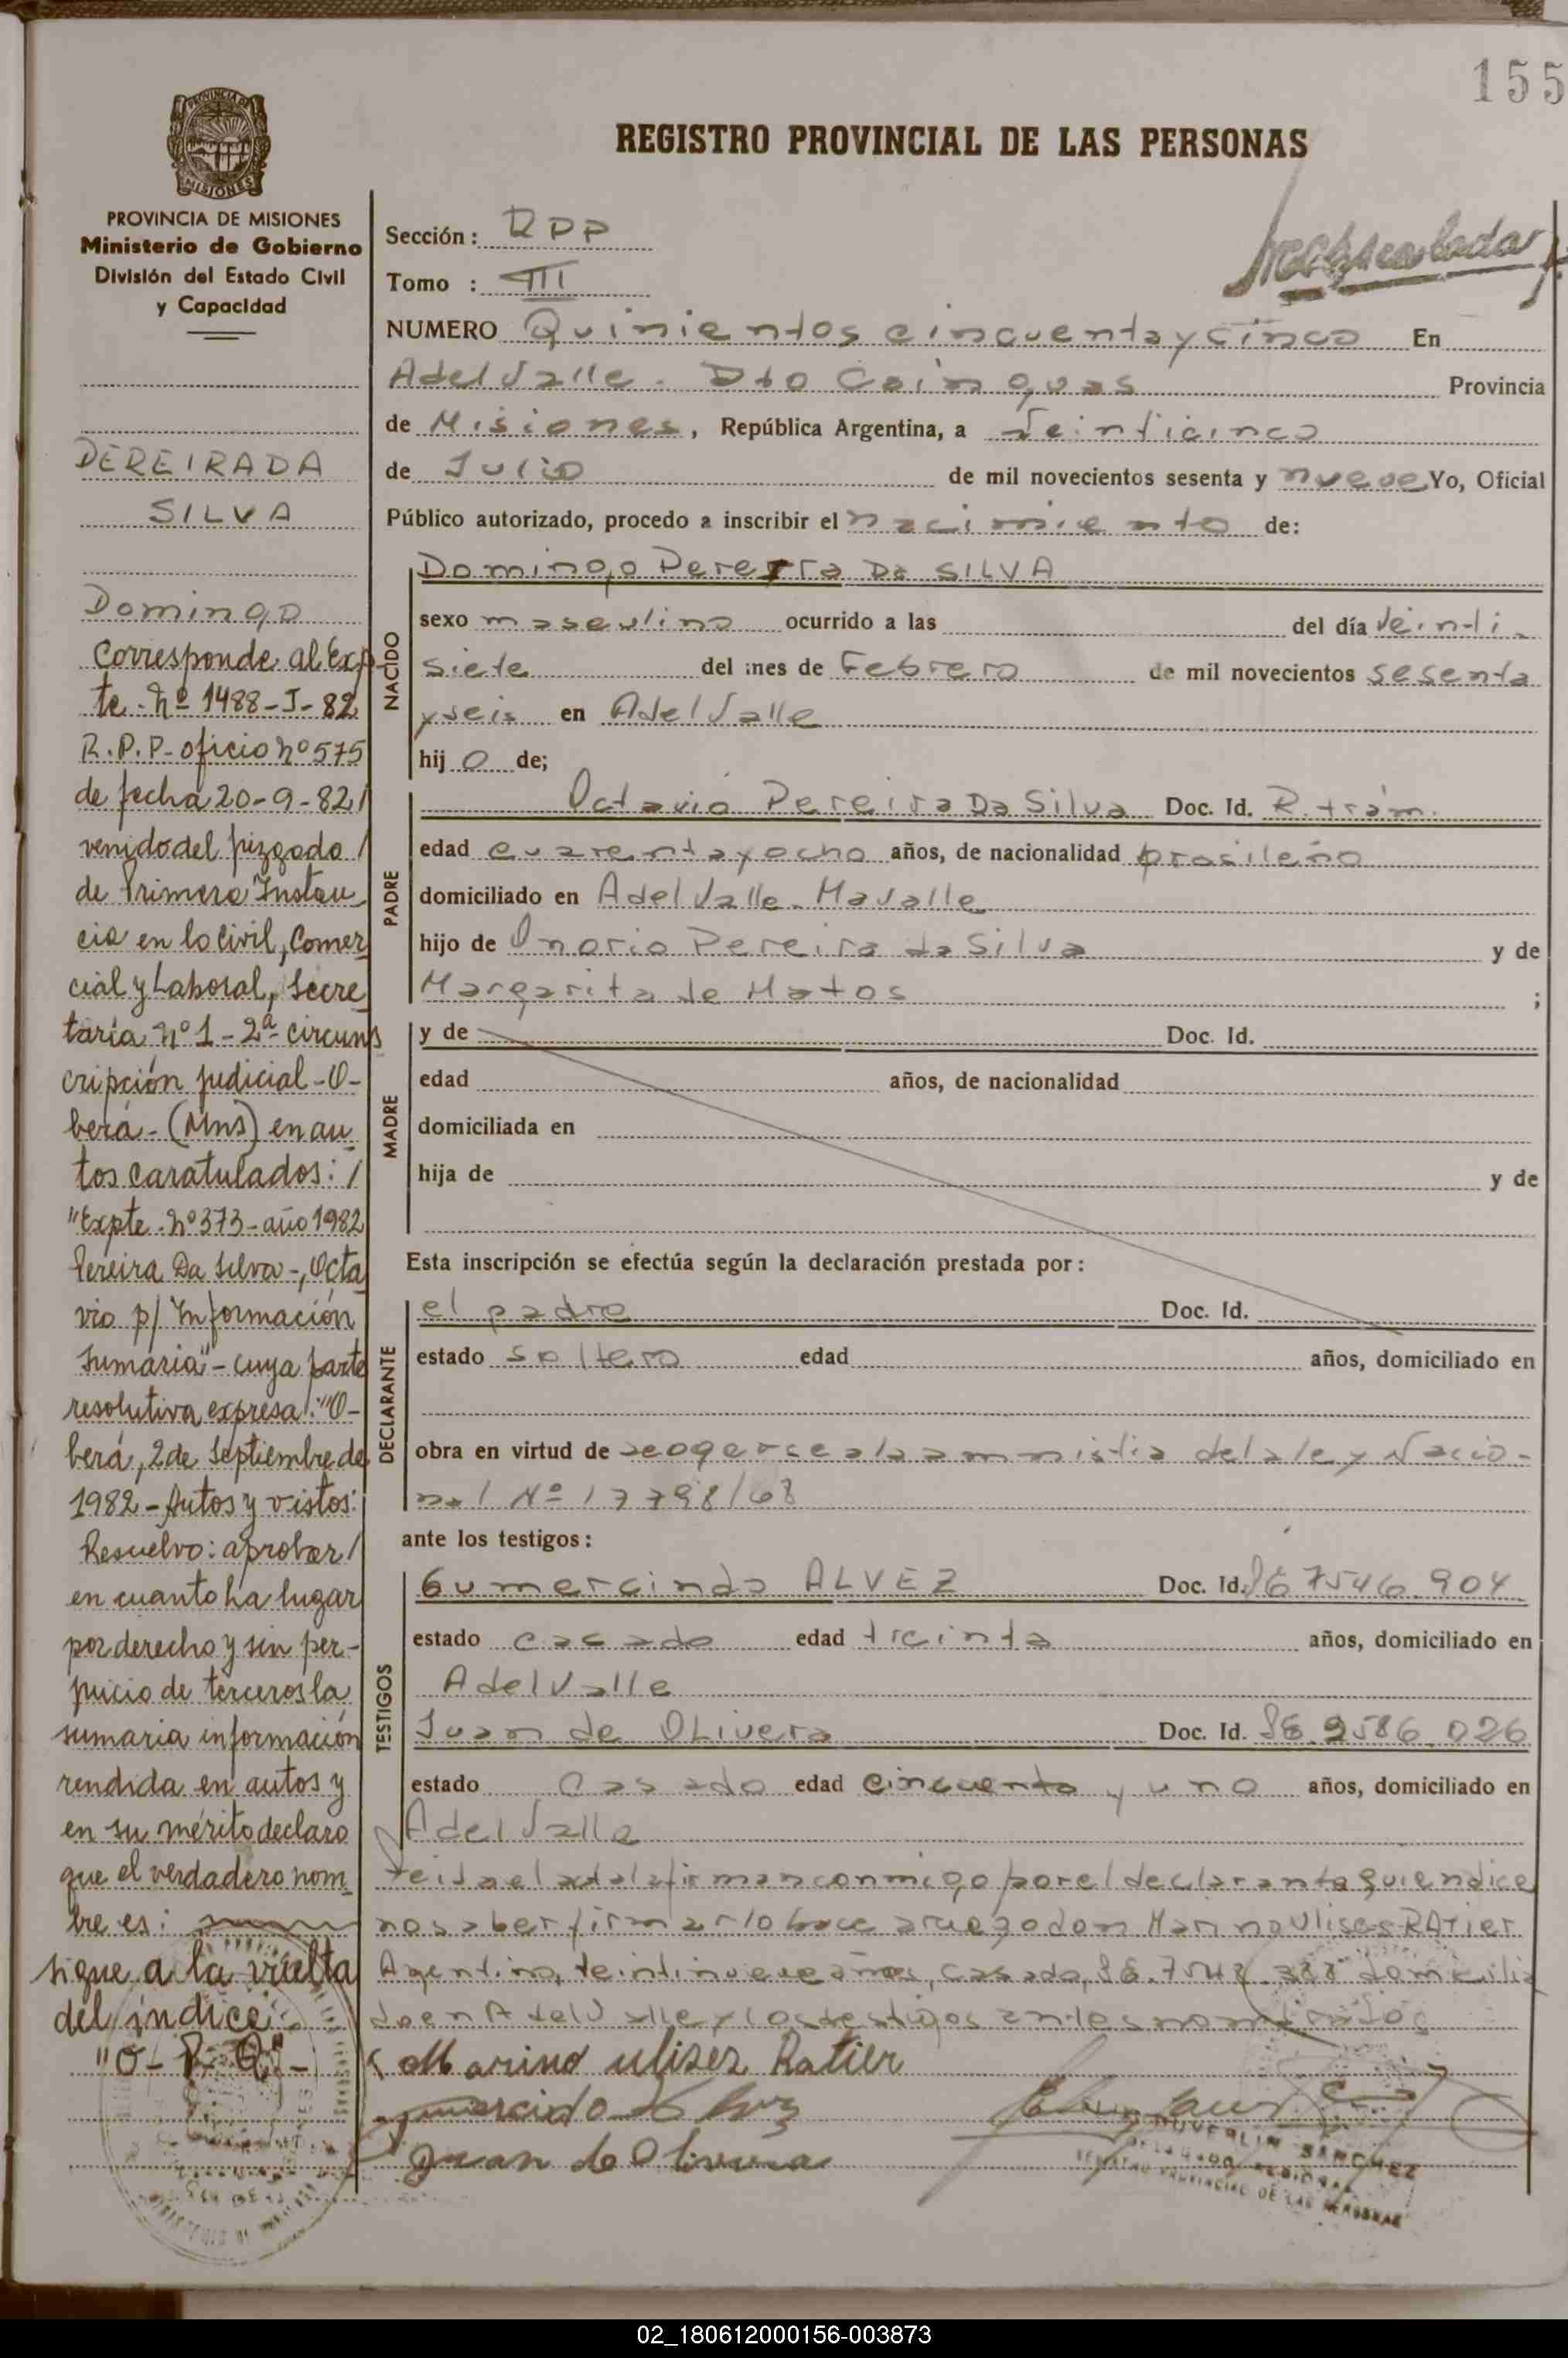 155
REGISTRO PROVINCIAL DE LAS PERSONAS
PROVINCIA DE MISIONES
Ministerio de Gobierno
División del Estado Civil
y Capacidad
PEREIRA DA
SILVA
Domingo
Corresponde al Exp-
te. Nº 1488-J-82
R.P.P- oficio nº 575
de fecha 20-9-82/
venido del juzgado /
de Primera Instan
cia en lo Civil, Comer
cial y Laboral, Secre
taría nº 1 - 2ª circuns
cripción judicial - O-
berá - (Mns) en au
tos caratulados: /
"Expte. nº 373 - año 1982
Pereira Da Silva-, Octa
vio p/ Información
Sumaria" - cuya parte
resolutiva expresa: "O-
berá, 2 de Septiembre de
1982 - Autos y vistos:
Resuelvo: aprobar /
en cuanto ha lugar
por derecho y sin per-
juicio de terceros la
sumaria información
rendida en autos y
en su mérito declaro
que el verdadero nom
bre es:
sigue a la vuelta
del índice
Sección: RPP
Tomo : III
NUMERO Quinientos cincuenta y cinco En
Adel Valle. Dto Cainguas Provincia
de Misiones, República Argentina, a Veinticinco
de Julio de mil novecientos sesenta y nueve Yo, Oficial
Público autorizado, procedo a inscribir el nacimiento de:
NACIDO
Domingo Pereira Da SILVA
sexo masculino ocurrido a las del día Veinti-
siete del mes de Febrero de mil novecientos sesenta
y seis en Adel Valle
hij o de;
PADRE
Octavio Pereira Da Silva Doc. Id. R. trám.
edad cuarenta y ocho años, de nacionalidad brasileño
domiciliado en Adel Valle - Mavalle
hijo de Onorio Pereira da Silva y de
Margarita de Matos ;
MADRE
y de Doc. Id.
edad años, de nacionalidad
domiciliada en
hija de y de
Esta inscripción se efectúa según la declaración prestada por:
DECLARANTE
el padre Doc. Id.
estado soltero edad años, domiciliado en
obra en virtud de acogerse a la amnistia de la ley Nacio-
nal Nº 17798/68
ante los testigos:
TESTIGOS
Gumercindo ALVEZ Doc. Id. 7546.904
estado casado edad treinta años, domiciliado en
Adel Valle
Juan de OLivera Doc. Id. 9586.026
estado Casado edad cincuenta y uno años, domiciliado en
Adel Valle
Leida el acta la firman conmigo por el declarante quien dice
no saber firmar lo hace a ruego don Marino Ulises RATier
Argentino, veintinueve años, casado, domicilia
do en Adel Valle y los testigos antes nombrados
Marino ulises Ratier
Juan de Olivera
SANCHEZ
REGISTRO PROVINCIAL DE LAS PERSONAS
02_180612000156-003873